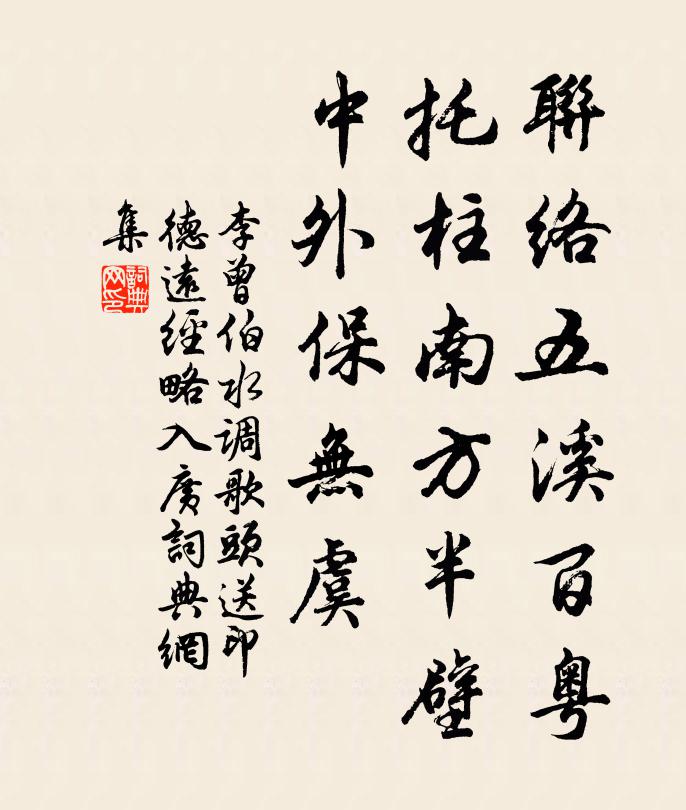 聯絡五溪百粵
托柱南方半壁
中外保無虞
李曾伯水調歌頭送印
德遠經略入廣詞典網
集
詞典
网印